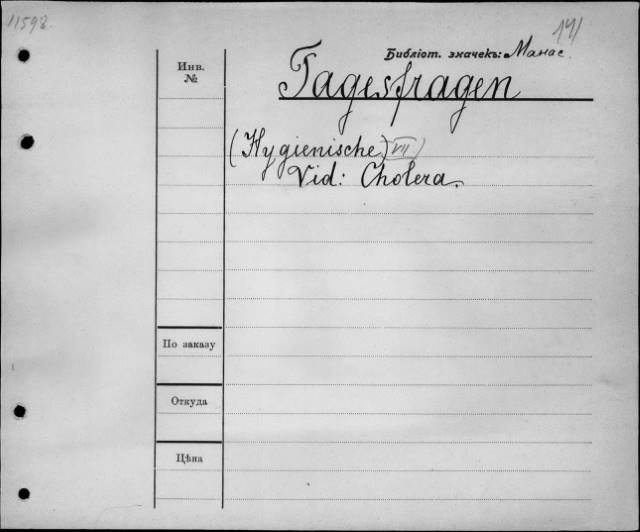 11598.
141
Библіот. значекъ: Манас.
Инв.
№
Tagesfragen
(Hygienische) VII)
Vid: Cholera.
По заказу
Откуда
Цѣна